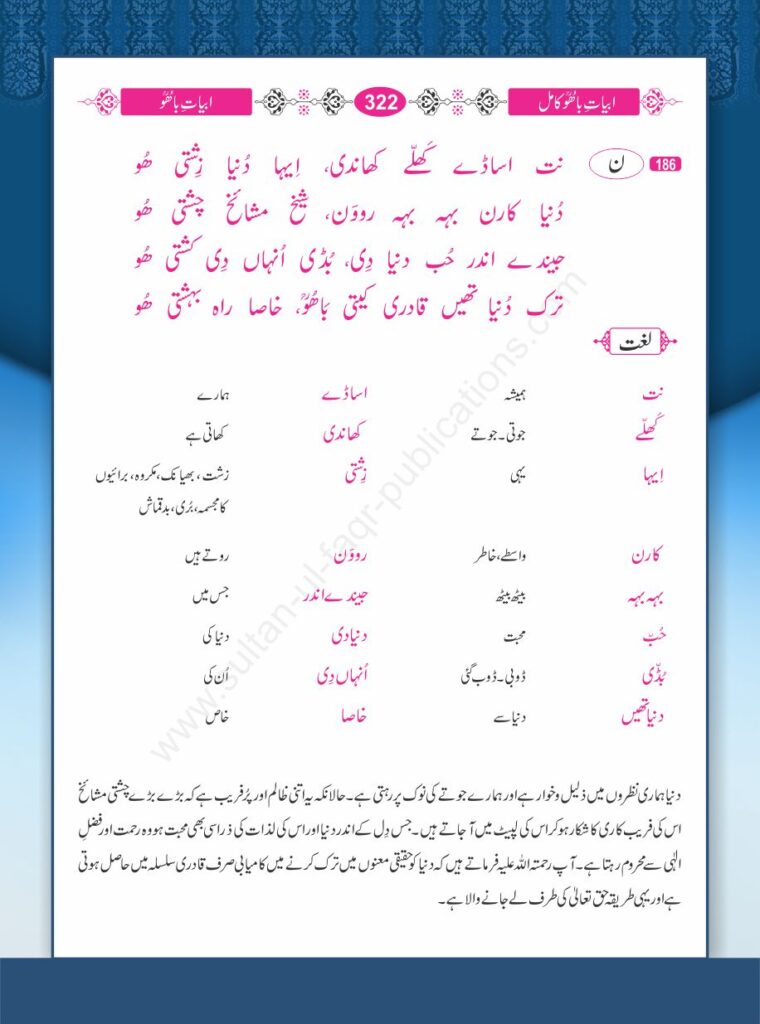 ابیاتِ باھُوؒ کامل 322 ابیاتِ باھُوؒ
186 ن نت اساڈے کَھلّے کھاندی، اِیہا دُنیا زِشتی ھُو
دُنیا کارن بہہ بہہ روون، شیخ مشائخ چشتی ھُو
جیندے اندر حُب دنیا دِی، بُڈی اُنہاں دِی کشتی ھُو
ترک دُنیا تھیں قادری کیتی بَاھُوؒ، خاصا راہ بہشتی ھُو
لغت
نت ہمیشہ اساڈے ہمارے
کَھلّے جوتی۔جوتے کھاندی کھاتی ہے
اِیہا یہی زِشتی زشت، بھیانک، مکروہ، برائیوں
کا مجسمہ، بُری، بدقماش
کارن واسطے، خاطر روون روتے ہیں
بہہ بہہ بیٹھ بیٹھ جیندے اندر جس میں
حُبّ محبت دنیا دی دنیا کی
بُڈّی ڈوبی۔ڈوب گئی اُنہاں دِی اُن کی
دنیا تھیں دنیا سے خاصا خاص
دنیا ہماری نظروں میں ذلیل و خوار ہے اور ہمارے جوتے کی نوک پر رہتی ہے۔ حالانکہ یہ اتنی ظالم اور پُر فریب ہے کہ بڑے بڑے چشتی مشائخ
اس کی فریب کاری کا شکار ہو کر اس کی لپیٹ میں آ جاتے ہیں۔ جس دِل کے اندر دنیا اور اس کی لذات کی ذرا سی بھی محبت ہو وہ رحمت اور فضلِ
الٰہی سے محروم رہتا ہے۔ آپ رحمتہ اللہ علیہ فرماتے ہیں کہ دنیا کو حقیقی معنوں میں ترک کرنے میں کامیابی صرف قادری سلسلہ میں حاصل ہوتی
ہے اور یہی طریقہ حق تعالیٰ کی طرف لے جانے والا ہے۔
www.sultan-ul-faqr-publications.com